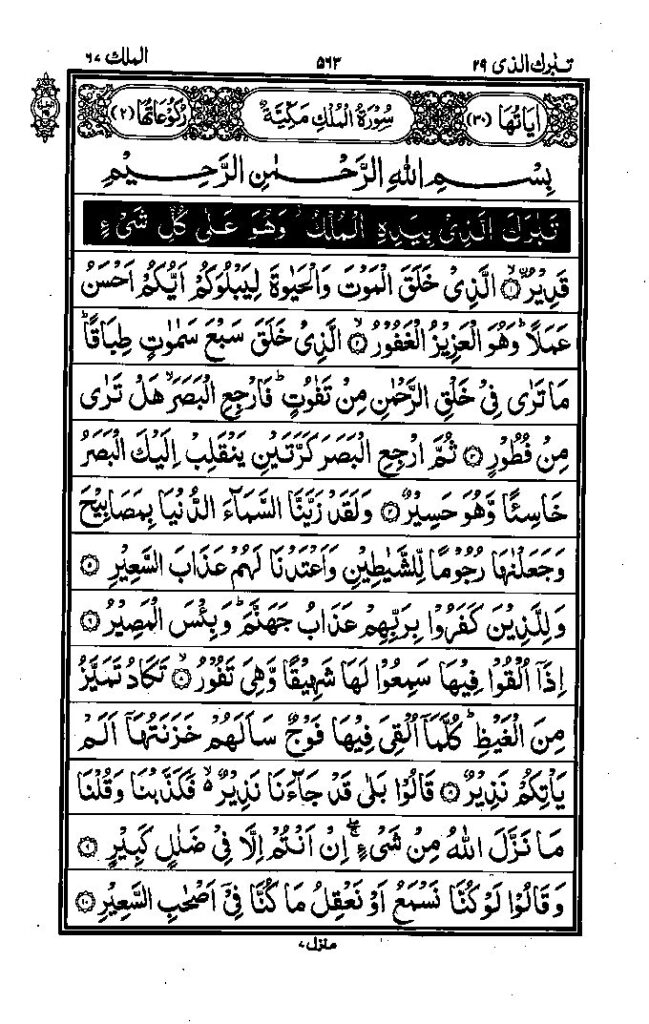 تبٰرك الذی ۲۹ ۵۶۳ الملك ۶۷
اٰيَاتُهَا (۳۰) سُوْرَةُ الْمُلْكِ مَكِّيَّةٌ رُكُوْعَاتُهَا (۲)
بِسْمِ اللّٰهِ الرَّحْمٰنِ الرَّحِيْمِ
تَبٰرَكَ الَّذِيْ بِيَدِهِ الْمُلْكُ وَهُوَ عَلٰى كُلِّ شَيْءٍ
قَدِيْرٌ ۙ﴿۱﴾ الَّذِيْ خَلَقَ الْمَوْتَ وَالْحَيٰوةَ لِيَبْلُوَكُمْ اَيُّكُمْ اَحْسَنُ
عَمَلًا ؕ وَهُوَ الْعَزِيْزُ الْغَفُوْرُ ۙ﴿۲﴾ الَّذِيْ خَلَقَ سَبْعَ سَمٰوٰتٍ طِبَاقًا ؕ
مَا تَرٰى فِيْ خَلْقِ الرَّحْمٰنِ مِنْ تَفٰوُتٍ ؕ فَارْجِعِ الْبَصَرَ ۙ هَلْ تَرٰى
مِنْ فُطُوْرٍ ﴿۳﴾ ثُمَّ ارْجِعِ الْبَصَرَ كَرَّتَيْنِ يَنْقَلِبْ اِلَيْكَ الْبَصَرُ
خَاسِئًا وَّهُوَ حَسِيْرٌ ﴿۴﴾ وَلَقَدْ زَيَّنَّا السَّمَآءَ الدُّنْيَا بِمَصَابِيْحَ
وَجَعَلْنٰهَا رُجُوْمًا لِّلشَّيٰطِيْنِ وَاَعْتَدْنَا لَهُمْ عَذَابَ السَّعِيْرِ ﴿۵﴾
وَلِلَّذِيْنَ كَفَرُوْا بِرَبِّهِمْ عَذَابُ جَهَنَّمَ ؕ وَبِئْسَ الْمَصِيْرُ ﴿۶﴾
اِذَآ اُلْقُوْا فِيْهَا سَمِعُوْا لَهَا شَهِيْقًا وَّهِيَ تَفُوْرُ ۙ﴿۷﴾ تَكَادُ تَمَيَّزُ
مِنَ الْغَيْظِ ؕ كُلَّمَآ اُلْقِيَ فِيْهَا فَوْجٌ سَاَلَهُمْ خَزَنَتُهَآ اَلَمْ
يَاْتِكُمْ نَذِيْرٌ ﴿۸﴾ قَالُوْا بَلٰى قَدْ جَآءَنَا نَذِيْرٌ ۵ۙ فَكَذَّبْنَا وَقُلْنَا
مَا نَزَّلَ اللّٰهُ مِنْ شَيْءٍ ۖۚ اِنْ اَنْتُمْ اِلَّا فِيْ ضَلٰلٍ كَبِيْرٍ ﴿۹﴾
وَقَالُوْا لَوْ كُنَّا نَسْمَعُ اَوْ نَعْقِلُ مَا كُنَّا فِيْٓ اَصْحٰبِ السَّعِيْرِ ﴿۱۰﴾
منزل ۷